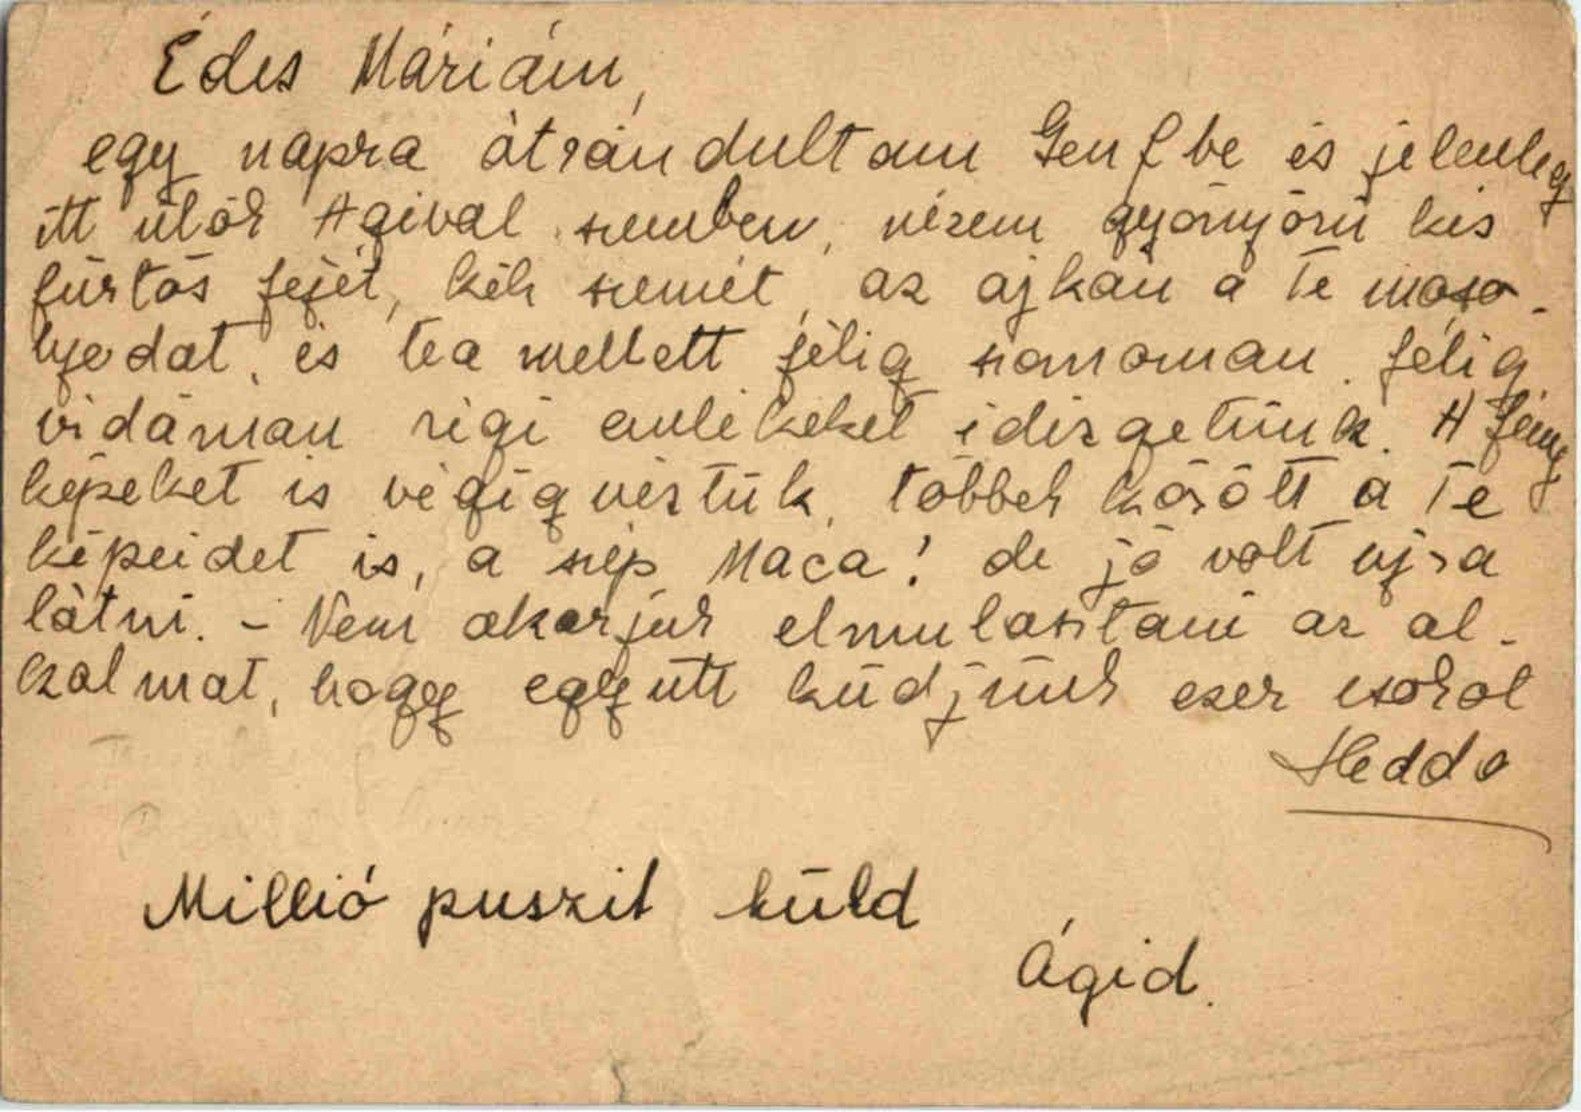 Édes Máriám,
egy napra átrándultam Genfbe és jelenleg
itt ülök Agival szemben, nézem gyönyörű kis
fürtös fejét, kék szemét, az ajkán a Te moso-
lyodat, és tea mellett félig szomorúan, félig
vidáman régi emlékeket idézgetünk. A fény
képeket is végignéztük, többek között a Te
képeidet is, a szép Maca! de jó volt ujra
látni. - Nem akarjuk elmulasztani az al-
kalmat, hogy együtt küdjünk ezer csókot
Hedda
Millió puszit küld
Ágid.